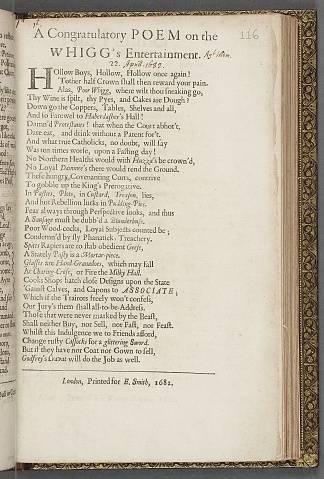 A Congratulatory POEM on the
116
WHIGG's Entertainment.
22. April. 1682.
HOllow Boys, Hollow, Hollow once again!
'Tother half Crown shall then reward your pain.
Alas, Poor Whigg, where wilt thou sneaking go,
Thy Wine is spilt, thy Pyes, and Cakes are Dough?
Down go the Coppers, Tables, Shelves and all,
And so Farewel to Haberdasher's Hall!
Damn'd Protestants! that when the Court abhor't,
Dare eat, and drink without a Patent for't.
And what true Catholicks, no doubt, will say
Was ten times worse, upon a Fasting day!
No Northern Healths would with Huzza's be crown'd,
No Loyal Dammee's there would rend the Ground.
These hungry Covenanting Curts, contrive
To gobble up the King's Prerogative.
In Pasties, Plots, in Custard, Treason, lies,
And hot Rebellion lurks in Pudding-Pies.
Fear always through Perspective looks, and thus
A Sausage must be dubb'd a Blunderbuss.
Poor Wood-cocks, Loyal Subjects counted be;
Condemn'd by sly Phanatick Treachery.
Spits Rapiers are to stab obedient Geese,
A Stately Pasty is a Mortar-piece.
Glasses are Hand-Granadoes, which may fall
At Charing-Cross, or Fire the Milky Hall.
Cooks Shops hatch close Designs upon the State
Gainst Calves, and Capons to ASSOCIATE;
Which if the Traitors freely won't confess,
Our Jury's them shall all-to-be-Address.
Those that were never marked by the Beast,
Shall neither Buy, nor Sell, nor Fast, nor Feast.
Whilst this Indulgence we to Friends afford,
Change rusty Cassocks for a glittering Sword.
But if they have nor Coat nor Gown to sell,
Godfrey's Cravat will do the Job as well.
London, Printed for E. Smith, 1682.